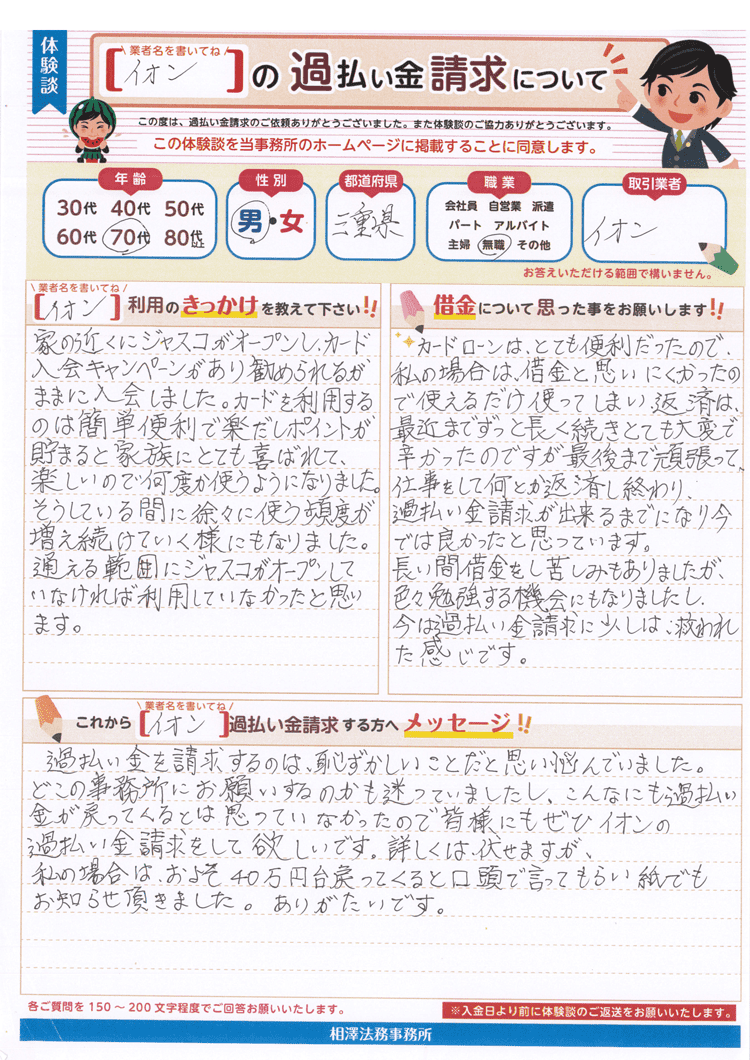 体験談
業者名を書いてね
[イオン]の 過払い金請求について
この度は、過払い金請求のご依頼ありがとうございました。また体験談のご協力ありがとうございます。
この体験談を当事務所のホームページに掲載することに同意します。
年齢
30代 40代 50代
60代 70代 80代以上
性別
男・女
都道府県
三重県
職業
会社員 自営業 派遣
パート アルバイト
主婦 無職 その他
取引業者
イオン
お答えいただける範囲で構いません。
業者名を書いてね
[イオン]利用のきっかけを教えて下さい!!
家の近くにジャスコがオープンし、カード
入会キャンペーンがあり勧められるが
ままに入会しました。カードを利用する
のは簡単便利で楽だしポイントが
貯まると家族にとても喜ばれて、
楽しいので何度か使うようになりました。
そうしている間に徐々に使う頻度が
増え続けていく様にもなりました。
通える範囲にジャスコがオープンして
いなければ利用していなかったと思い
ます。
借金について思った事をお願いします!!
カードローンは、とても便利だったので、
私の場合は、借金と思いにくかったの
で使えるだけ使ってしまい返済は、
最近までずっと長く続きとても大変で
辛かったのですが最後まで頑張って、
仕事をして何とか返済し終わり、
過払い金請求が出来るまでになり今
では良かったと思っています。
長い間借金をし苦しみもありましたが、
色々勉強する機会にもなりましたし、
今は過払い金請求に少しは、救われ
た感じです。
業者名を書いてね
これから[イオン]過払い金請求する方へメッセージ!!
過払い金を請求するのは、恥ずかしいことだと思い悩んでいました。
どこの事務所にお願いするのかも迷っていましたし、こんなにも過払い
金が戻ってくるとは思っていなかったので皆様にもぜひイオンの
過払い金請求をして欲しいです。詳しくは、伏せますが、
私の場合は、およそ40万円台戻ってくると口頭で言ってもらい紙でも
お知らせ頂きました。ありがたいです。
各ご質問を150～200文字程度でご回答お願いいたします。
※入金日より前に体験談のご返送をお願いいたします。
相澤法務事務所